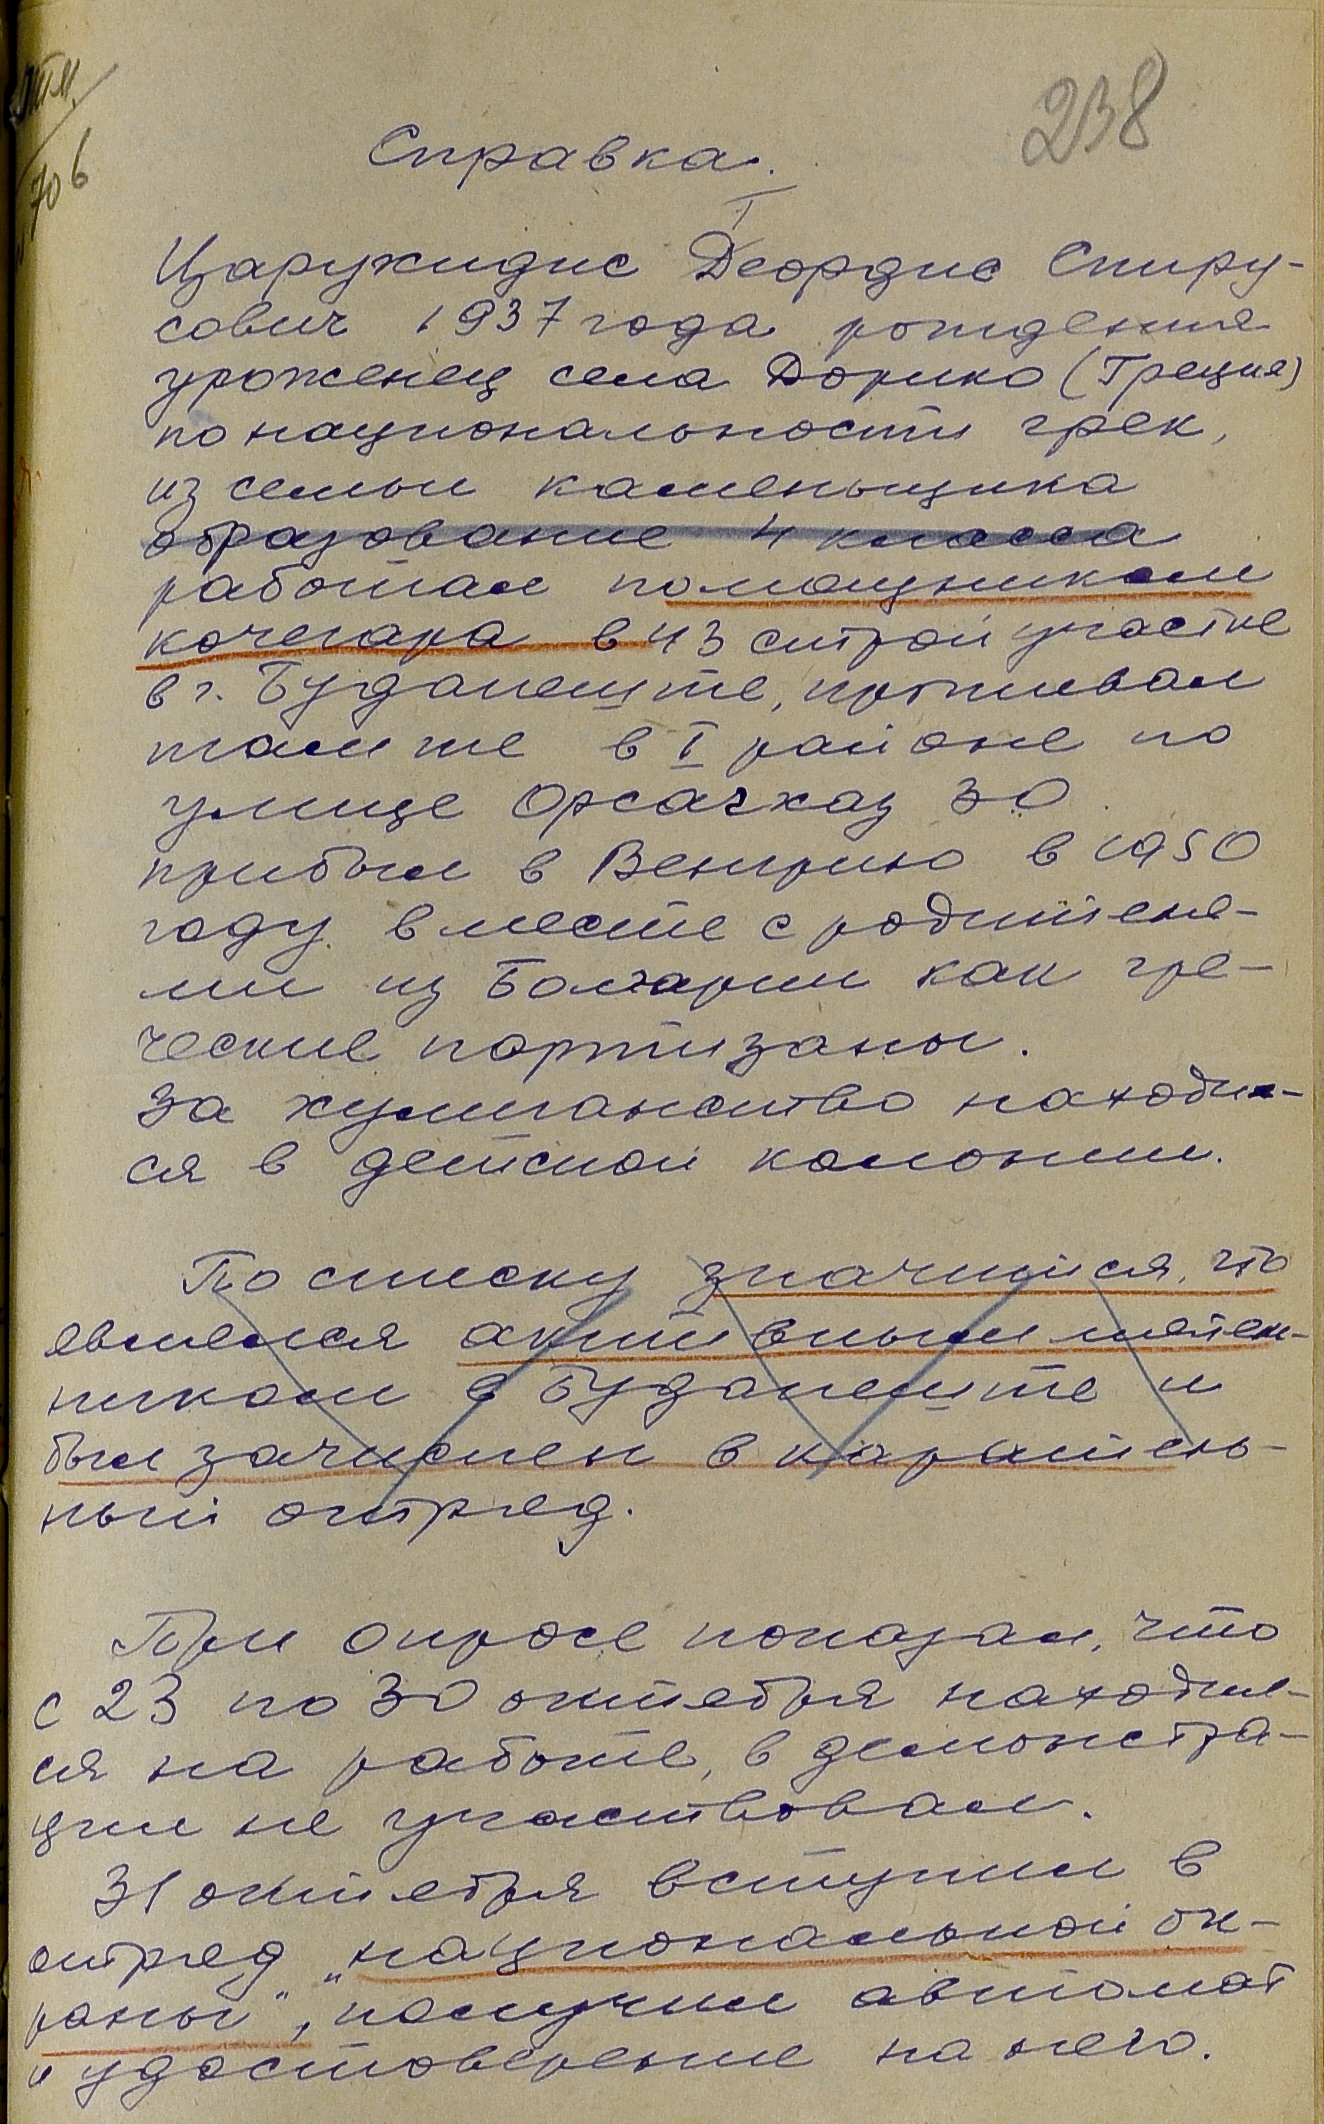 238
Справка.
Царухидис Деордис Спиру-
сович 1937 года рождения
уроженец села Дорико (Греция)
по национальности грек,
из семьи каменьщика
образование 4 класса
работал помощником
кочегара в 43 строй участке
в г. Будапеште, проживал
там же в I районе по
улице Орсачхаз 30
прибыл в Венгрию в 1950
году вместе с родителя-
ми из Болгарии как гре-
ческие партизаны.
За хулиганство находил-
ся в детской колонии.
По списку значится, что
евляелся активным мятеж-
ником в Будапеште и
был зачислен в каратель-
ный отряд.
При опросе показал, что
с 23 по 30 октебря находил-
ся на работе, в демонстра-
ции не участвовал.
31 октебря вступил в
отряд „национальной ох-
раны", получил автомат
и удостоверение на него.